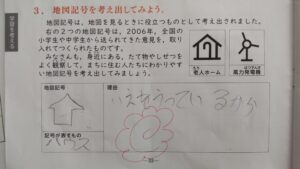 学習を考える
3. 地図記号を考え出してみよう。
地図記号は、地図を見るときに役立つものとして考え出されました。
右の2つの地図記号は、2006年、全国の
小学生や中学生から送られてきた意見を、取り
入れてつくられたものです。
みなさんも、身近にある、たて物やしせつを
よく観察して、まちに住む人たちにわかりやす
い地図記号を考え出してみましょう。
老人ホーム
風力発電機
地図記号
理由
いえをうっているから
記号が表すもの
ハウス